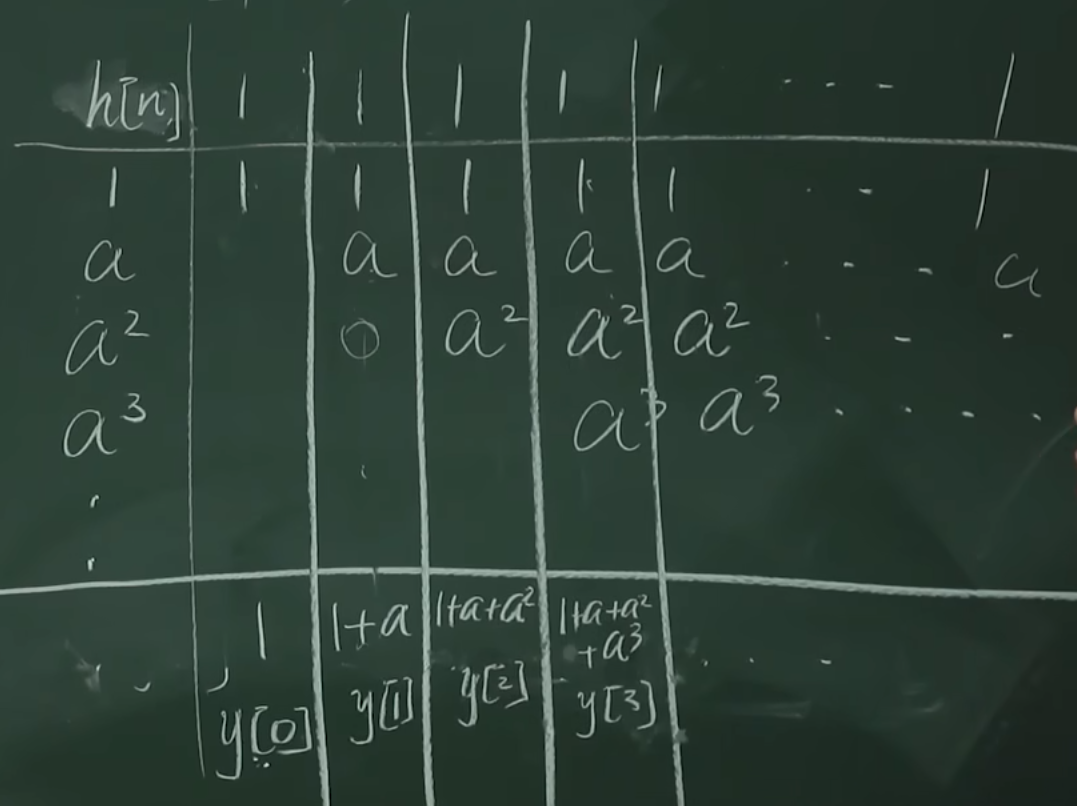 h[n] 1 1 1 1 1 - - - 1
1 1 1 1 1 1 · - 1
a a a a a · - - a
a² 0 a² a² a² · - -
a³ a³ a³ · · · ·
·
·
1 1+a 1+a+a² 1+a+a² · · -
+a³
y[0] y[1] y[2] y[3]